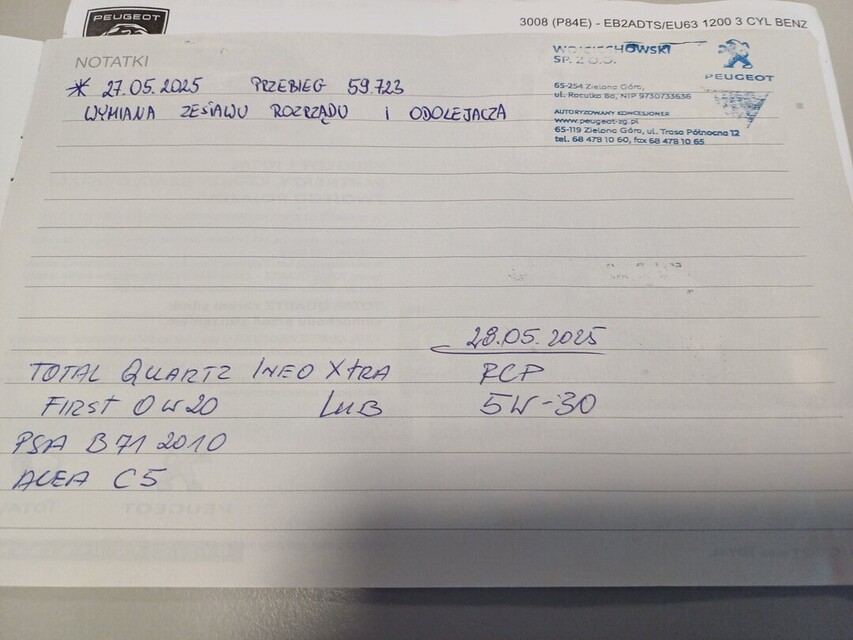 PEUGEOT
3008 (P84E) - EB2ADTS/EU63 1200 3 CYL BENZ
NOTATKI
* 27.05.2025 PRZEBIEG 59.723
WYMIANA ZESTAWU ROZRZĄDU i ODOLEJACZA
WOJCIECHOWSKI
SP. Z O.O.
PEUGEOT
65-254 Zielona Góra,
ul. Racula 8a, NIP 9730733636
AUTORYZOWANY KONCESJONER
www.peugeot-zg.pl
65-119 Zielona Góra, ul. Trasa Północna 12
tel. 68 478 10 60, fax 68 478 10 65
28.05.2025
TOTAL QUARTZ INEO XtRA PCP
FIRST 0W20 LUB 5W-30
PSA B71 2010
ACEA C5